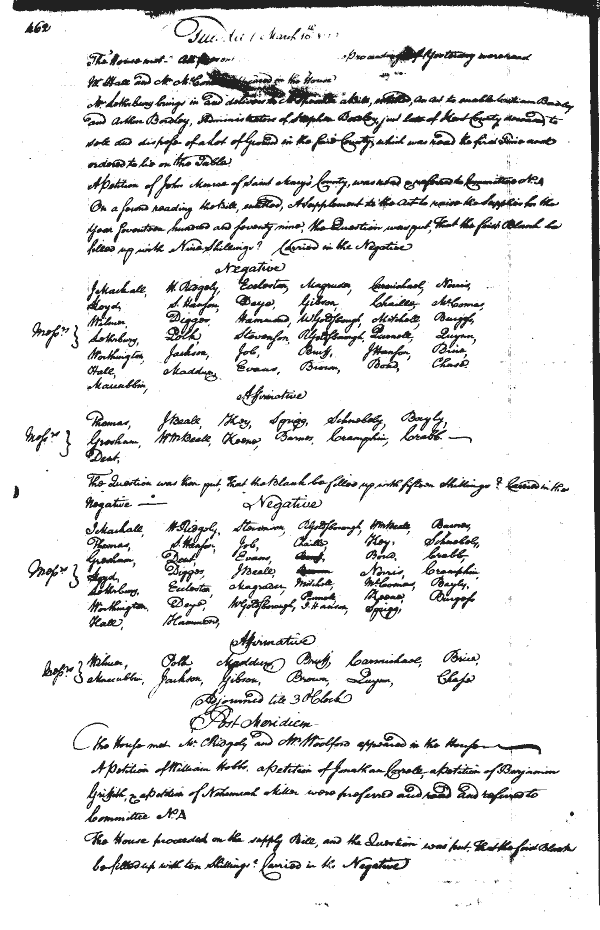 462
March 16th
The House met. All Proceedings of Yesterday were read
Mr Hall and Mr in the House
Mr Lethrbury brings in and delivers to Mr Speaker a Bill, entitled, An act to enable William Bordley
and Arthur Bordley, Administrators of Stephen Bordley, late of Kent County deceased, to
sell and dispose of a Lot of Ground in the said County, which was read the first Time and
ordered to lie on the Table
A Petition of John Munroe of Saint Mary's County, was read & referred to Committee No. A
On a second reading the Bill, entitled, A Supplement to the Act to raise the Supplies for the
Year Seventeen hundred and seventy nine, the Question was put, That the first Blank be
filled up with Nine Shillings? Carried in the Negative
Negative
J Mackall, H. Ridgely, Eccleston, Magruder, Carmichael, Norris,
Lloyd, S. Hanson, Deye, Gibson, Chaille, McComas,
Wilmer, Digges, Hammond, W Goldsborough, Mitchell, Burgess,
Messrs } Lethrbury, Polk, Stevenson, R Goldsborough, Purnell, Quynn,
Worthington, Jackson, Job, Bruff, J Hanson, Brice,
Hall, Maddux, Evans, Brown, Bond, Chase
Maccubbin,
Affirmative
Thomas, J Beall, Key, Sprigg, Schnebely, Bayly,
Messrs } Gresham, Wm Beall, Keene, Barnes, Cramphin, Crabb.
Dent,
The Question was then put, That the Blank be filled up with fifteen Shillings? Carried in the
Negative
Negative
J Mackall, H. Ridgely, Stevenson, R Goldsborough, Wm Beall, Barnes,
Thomas, S. Hanson, Job, Chaille, Key, Schnebely,
Gresham, Dent, Evans, Bond, Crabb,
Messrs } Lloyd, Digges, J Beall, Norris, Cramphin,
Lethrbury, Eccleston, Magruder, Mitchell, McComas, Bayly,
Worthington, Deye, W Goldsborough, Purnell, Keene, Burgess
Hall, Hammond, J Hanson, Sprigg,
Affirmative
Messrs } Wilmer, Polk, Maddux, Bruff, Carmichael, Brice,
Maccubbin, Jackson, Gibson, Brown, Quynn, Chase
Adjourned till 3 O'Clock
Post Meridiem
The House met. Mr C Ridgely and Mr Woolford appeared in the House
A Petition of William Hobbs, a petition of Jonathan a petition of Benjamin
Griffith, & a petition of Nehemiah Miller were preferred and read and referred to
Committee No. A
The House proceeded on the supply Bill, and the Question was put That the first Blank
be filled up with ten Shillings? Carried in the Negative